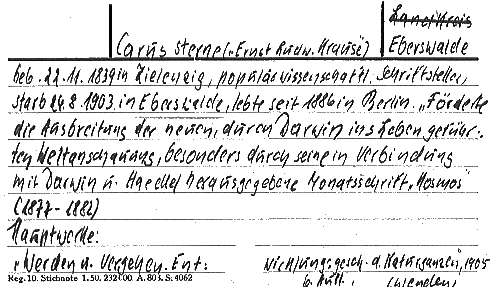 Landkreis
Carus Sterne („Ernst Rudw. Krause") Eberswalde
geb. 22.11.1839 in Zielenzig, populärwissenschaftl. Schriftsteller,
starb 24.8.1903 in Eberswalde, lebte seit 1886 in Berlin. „Förderte
die Ausbreitung der neuen, durch Darwin ins Leben gerühr-
ten Weltanschauung, besonders durch seine in Verbindung
mit Darwin u. Haeckel herausgegebene Monatsschrift „Kosmos"
(1877-1882)
Hauptwerke:
„Werden u. Vergehen. Ent: wicklungsgesch. d. Naturganzen", 1905
6. Aufl.
Reg. 10. Stichnote 1.50. 232000 A. 80 I. S: 4062